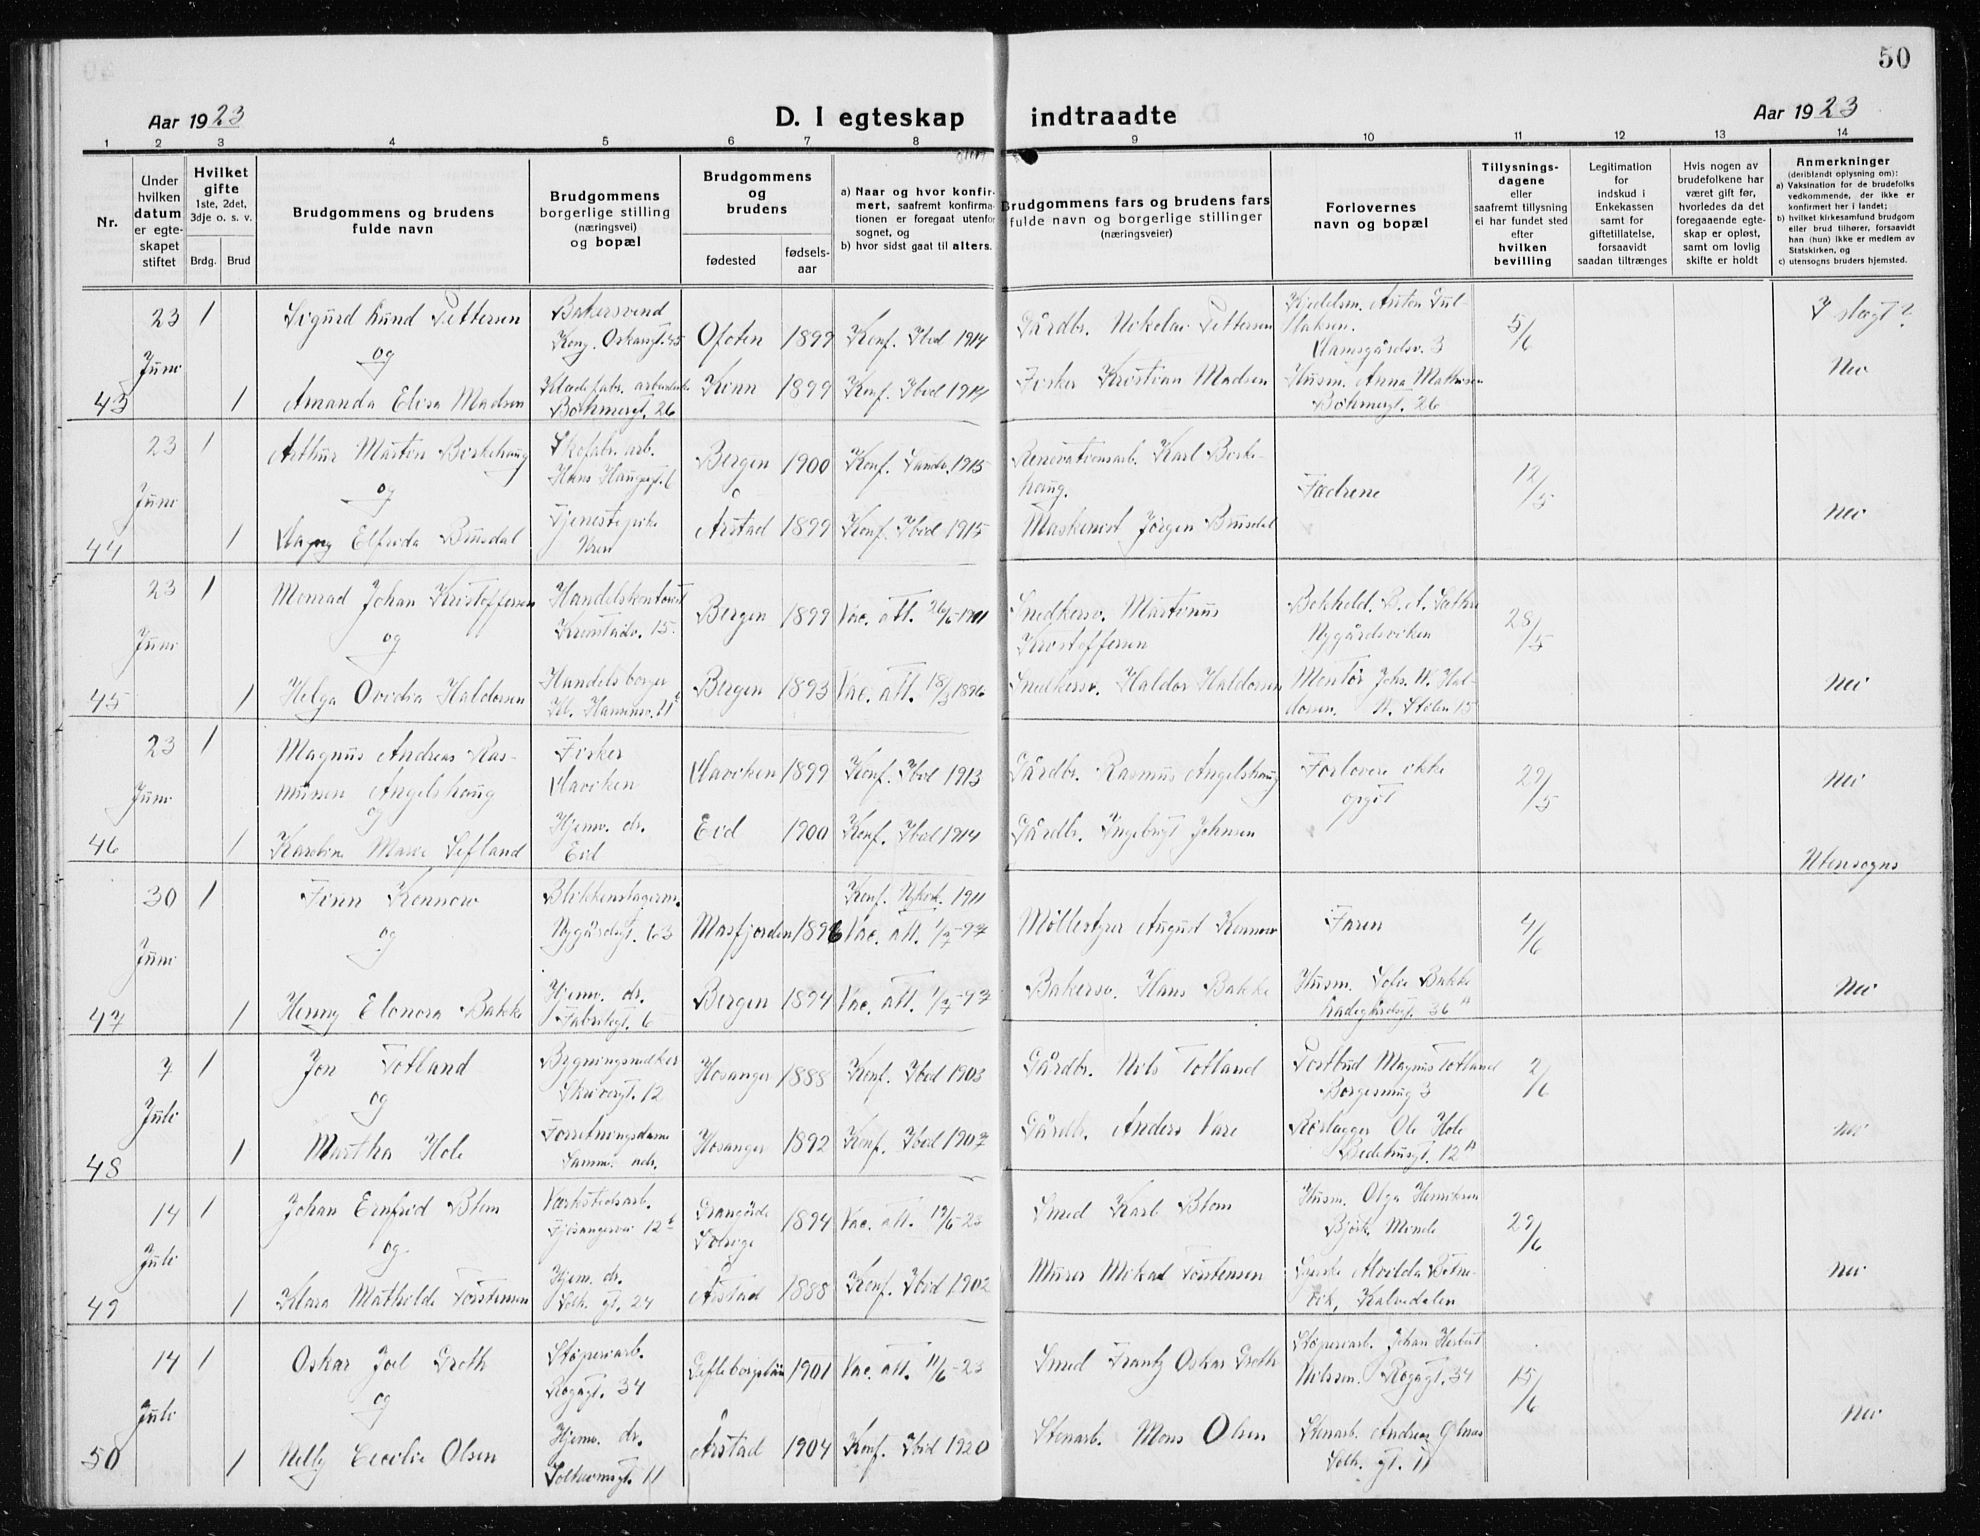 50
Aar 1923
D. I egteskap indtraadte
Aar 1923
1 2 3 4 5 6 7 8 9 10 11 12 13 14
Nr.
Under hvilken datum er egte-skapet stiftet
Hvilket gifte
1ste, 2det, 3dje o. s. v.
Brdg. Brud
Brudgommens og brudens fulde navn
Brudgommens borgerlige stilling (næringsvei) og bopæl
Brudgommens og brudens
fødested
fødsels-aar
a) Naar og hvor konfir-mert, saafremt konfirma-tionen er foregaat utenfor sognet, og
b) hvor sidst gaat til alters.
Brudgommens fars og brudens fars fulde navn og borgerlige stillinger (næringsveier)
Forlovernes navn og bopæl
Tillysnings-dagene eller saafremt tillysning ei har fundet sted efter hvilken bevilling
Legitimation for indskud i Enkekassen samt for giftetillatelse, forsaavidt saadan tiltrænges
Hvis nogen av brudefolkene har været gift før, hvorledes da det foregaaende egte-skap er opløst, samt om lovlig skifte er holdt
Anmerkninger
(deriblandt oplysning om):
a) Vaksination for de brudefolks vedkommende, der ikke er konfirmert her i landet;
b) hvilket kirkesamfund brudgom eller brud tilhører, forsaavidt han (hun) ikke er medlem av Statskirken, og
c) utensogns bruders hjemsted.
43
23 Juni
1
Sigurd Kund Pettersen
Bakersvend
Kong Oskarsgt. 45
Ofoten 1899 Konf. Ibid 1914
Gårdbr. Nikolai Pettersen
5/6
I slegt?
og
1
Amanda Elisa Madsen
Klædefabr. arbeiderske
Bøhmergt. 26
Kinn 1899 Konf. Ibid 1914
Fisker Kristian Madsen
Husm. Anna Mathisen
Bøhmergt. 26
Nei
44
23 Juni
1
Arthur Martin Birkehaug
Skofabr. arb.
Hans Haugesgt. 6
Bergen 1900 Konf. Sandv. 1915
Renovationsarb. Karl Birke-
haug.
Fædrene
12/5
og
1
Elfrida Brusdal
Tjenestepike
Vren
Årstad 1899 Konf. Ibid 1915
Maskinist Jørgen Brusdal
Nei
45
23 Juni
1
Monrad Johan Kristoffersen
Handelskontorist
Kronstadv. 15.
Bergen 1899 Vac. att. 26/6-1901
Snedkersv. Martinus
Kristoffersen
Bokhold. B. A. Sæthre
Nygårdsviken
28/5
og
1
Helga Ovidia Haldorsen
Handelsborger
Bergen 1893 Vac. att. 18/3 1896
Snedkersv. Haldor Haldorsen
Montør Johs. W. Hal-
dorsen. N. Stølen 15
Nei
46
23 Juni
1
Magnus Andreas Ras-
mussen Angelshaug
Fisker
Vaviken
Vaviken 1899 Konf. Ibid 1913
Gårdbr. Rasmus Angelshaug
Forlovere ikke
opgit
29/5
Nei
og
1
Karoline Marie Sefland
Hjemv. dr.
Eid
Eid 1900 Konf. Ibid 1914
Gårdbr. Ingebrigt Johnsen
Utensogns
47
30 Juni
1
Finn Konnow
Blikkenslagerm.
Nygårdsgt. 63
Masfjorden 1896
Konf. Nykirk. 1911
Vac. att. 1/7-97
Møllestyrer August Konnow
Faren
4/6
og
1
Henny Elonora Bakke
Hjemv. dr.
Fabrikgt. 6
Bergen 1894 Vac. att. 1/7-97
Bakersv. Hans Bakke
Husm. Sofie Bakke
Ladegårdsgt. 36 a
Nei
48
7 Juli
1
Jon Totland
Bygningsnedker
Skivergt. 12
Hosanger 1888 Konf. Ibid 1903
Gårdbr. Nils Totland
Postbud Magnus Totland
Borgersmug 3
2/6
og
1
Martha Hole
Forretningsdame
Samme adr.
Hosanger 1892 Konf. Ibid 1907
Gårdbr. Anders Vare
Rørlægger Ole Hole
Bedehusgt. 12 a
Nei
49
14 Juli
1
Johan Ernfred Blom
Værkstedsarb.
Fjøsangervei 12 b
Grangärde
Sverige
1894 Vac. att. 19/6-23
Smed Karl Blom
Husm. Olga Henriksen
Bjørk, Minde
29/6
og
1
Klara Mathilde Torstensen
Hjem. dr.
Solh. gt. 24
Årstad 1888 Konf. Ibid 1902
Murer Mikal Torstensen
Syerske Alvilda
vik, Kalvedalen
Nei
50
14 Juli
1
Oskar Joel Groth
Støperiarb.
Rogagt. 34
Gefleborgslän 1901 Vac. att. 11/6-23
Smed Frantz Oskar Groth
Støperiarb. Johan Herbert
Nilssen. Rogagt. 34
15/6
og
1
Nelly Cecilie Olsen
Hjemv. dr.
Solheimsgt. 11
Årstad 1904 Konf. Ibid 1920
Stenarb. Mons Olsen
Stenarb. Andreas Olsen
Solh. gt. 11
Nei